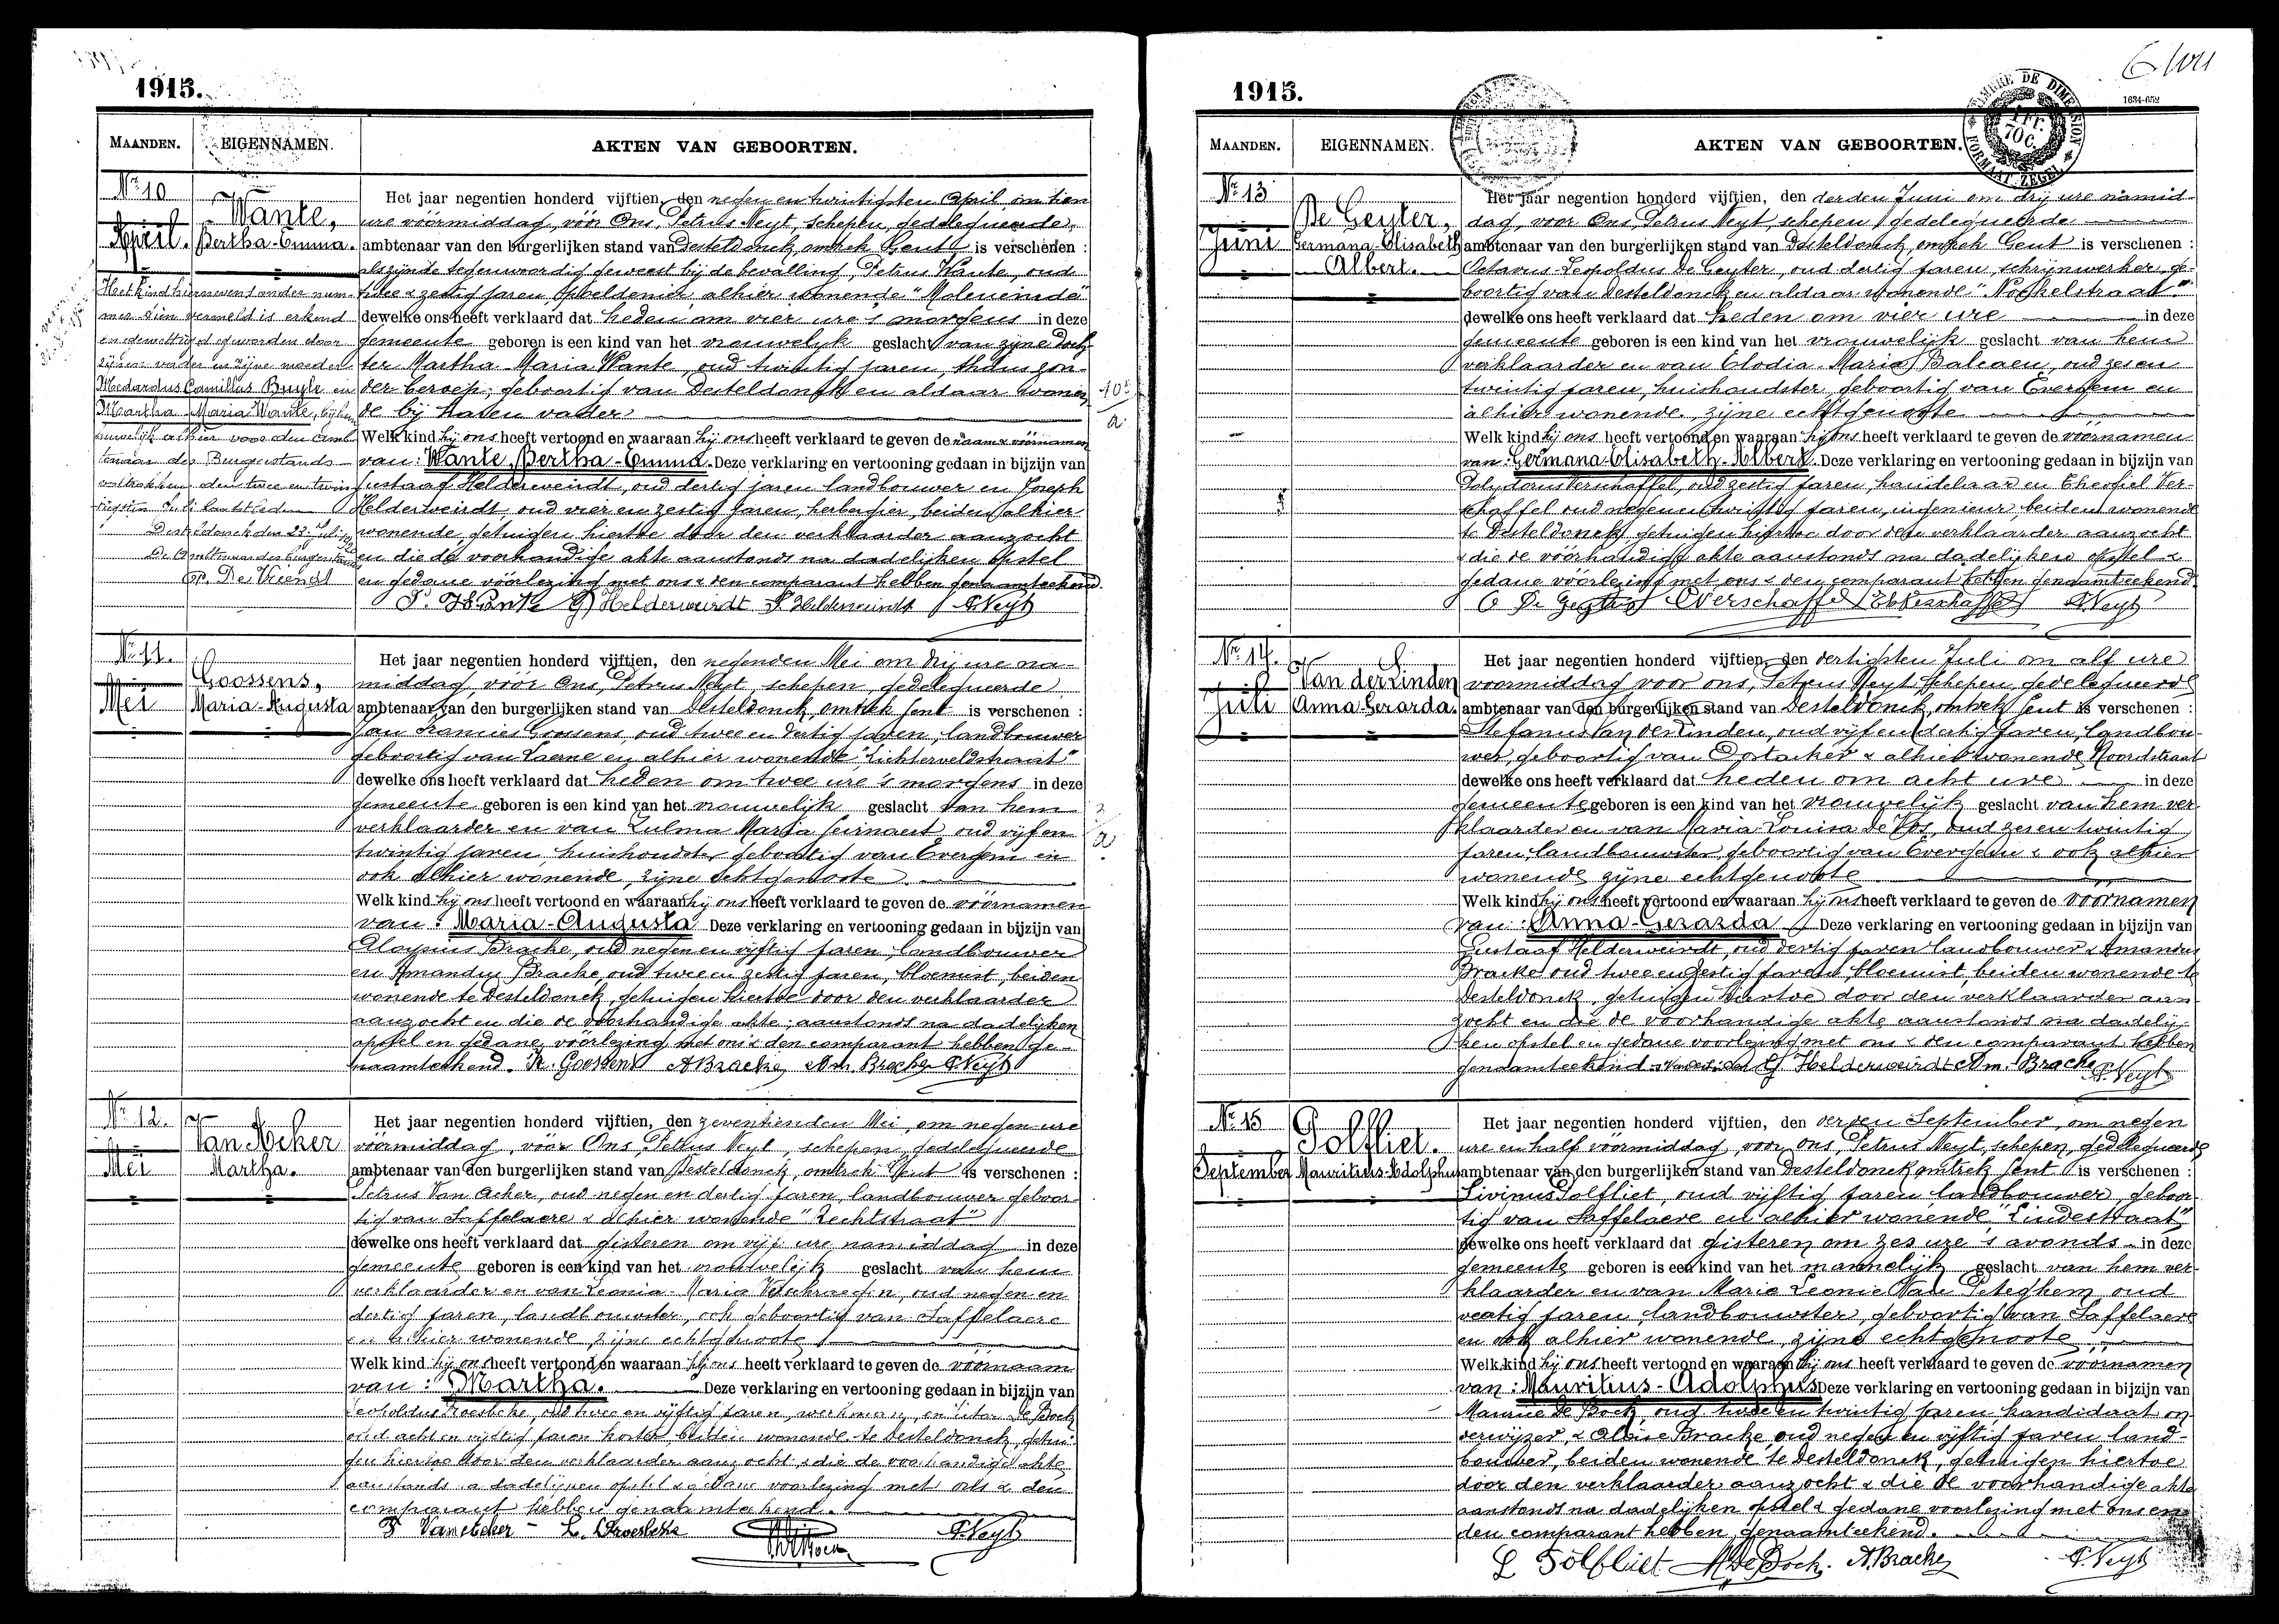 1915.
MAANDEN. EIGENNAMEN. AKTEN VAN GEBOORTEN.
Nr 10
April.
Wante,
Bertha-Emma.
Het kind hiernevens onder num-
mer tien vermeld is erkend
en gewettigd geworden door
zijnen vader en zijne moeder
Medardus Camillus Buyle en
Martha Maria Wante, bij hun
huwelijk alhier voor den amb-
tenaar des Burgerstands
voltrokken den twee en twin-
tigsten Juli laatstleden
Desteldonck den 23 Juli
De Ambtenaar des Burgerstands
Op. De Vriendt
Het jaar negentien honderd vijftien, den negen en twintigsten April, om tien
ure vóórmiddag, vóór Ons, Petrus Neyt, schepen, gedelegueerde,
ambtenaar van den burgerlijken stand van Desteldonck, omtrek Gent is verschenen :
als zijnde tegenwoordig geweest bij de bevalling, Petrus Wante, oud
twee & zestig jaren, alhier wonende "Moleneinde"
dewelke ons heeft verklaard dat heden om vier ure 's morgens in deze
gemeente geboren is een kind van het vrouwelijk geslacht van zijne doch-
ter Martha Maria Wante, oud twintig jaren, thans zon-
der beroep, geboortig van Desteldonck en aldaar wonen-
de bij haren vader
Welk kind hij ons heeft vertoond en waaraan hij ons heeft verklaard te geven de naam & vóórnamen
van: Wante, Bertha-Emma. Deze verklaring en vertooning gedaan in bijzijn van
Gustaaf Helderweirdt, oud dertig jaren landbouwer en Joseph
Helderweirdt, oud vier en zestig jaren, herbergier, beiden alhier
wonende, getuigen hiertoe door den verklaarder aanzocht
en die de voorhandige akte aanstonds na dadelijken opstel
en gedane vóórlezing met ons & den comparant hebben genaamteekend.
P. Wante G Helderweirdt J. Helderweirdt P. Neyt
Nr 11.
Mei
Goossens,
Maria-Augusta
Het jaar negentien honderd vijftien, den negenden Mei om drij ure na-
middag, vóór Ons, Petrus Neyt, schepen, gedelegueerde
ambtenaar van den burgerlijken stand van Desteldonck, omtrek Gent is verschenen :
Goossens, oud twee en dertig jaren, landbouwer
geboortig van Laerne en alhier wonende "Lichterveldstraat"
dewelke ons heeft verklaard dat heden om twee ure 's morgens in deze
gemeente geboren is een kind van het vrouwelijk geslacht van hem
verklaarder en van Zulma Maria Geirnaert oud vijf en
twintig jaren, huishoudster geboortig van Evergem en
ook alhier wonende, zijne echtgenoote
Welk kind hij ons heeft vertoond en waaraan hij ons heeft verklaard te geven de vóórnamen
van: Maria-Augusta Deze verklaring en vertooning gedaan in bijzijn van
Aloysius Bracke, oud negen en vijftig jaren, landbouwer
en Amandus Bracke, oud twee en zestig jaren, bloemist, beiden
wonende te Desteldonck, getuigen hiertoe door den verklaarder
aanzocht en die de voorhandige akte, aanstonds na dadelijken
opstel en gedane vóórlezing met ons & den comparant hebben ge-
naamteekend. Goossens A Bracke, Am. Bracke P. Neyt
Nr 12.
Mei
Van Acker
Martha.
Het jaar negentien honderd vijftien, den zeventienden Mei, om negen ure
vóórmiddag, vóór Ons, Petrus Neyt, schepen, gedelegueerde
ambtenaar van den burgerlijken stand van Desteldonck, omtrek Gent is verschenen :
Petrus Van Acker, oud negen en dertig jaren, landbouwer geboor-
tig van Saffelaere & alhier wonende "Rechtstraat"
dewelke ons heeft verklaard dat gisteren om vijf ure namiddag in deze
gemeente geboren is een kind van het vrouwelijk geslacht van hem
verklaarder en van Leonia Maria Verschraegen, oud negen en
dertig jaren, landbouwster, ook geboortig van Saffelaere
en alhier wonende, zijne echtgenoote
Welk kind hij ons heeft vertoond en waaraan hij ons heeft verklaard te geven de vóórnaam
van: Martha. Deze verklaring en vertooning gedaan in bijzijn van
Leopoldus Droesbeke, oud twee en vijftig jaren, werkman, en Victor De Bock
oud acht en vijftig jaren koster, beiden wonende te Desteldonck, getui-
gen hiertoe door den verklaarder aanzocht & die de voorhandige akte
aanstonds na dadelijken opstel & gedane voorlezing met ons & den
comparant hebben genaamteekend.
P Vanacker - L. Droesbeke P. Neyt
1915.
1634-652
TIMBRE DE DIMENSION
FORMAAT-ZEGEL
MAANDEN. EIGENNAMEN. AKTEN VAN GEBOORTEN.
Nr 13
Juni
De Geyter,
Germana-Elisabeth
Albert.
Het jaar negentien honderd vijftien, den derden Juni om drij ure namid-
dag, voor Ons, Petrus Neyt, schepen, gedelegueerde
ambtenaar van den burgerlijken stand van Desteldonck, omtrek Gent is verschenen :
Octavus-Leopoldus De Geyter, oud dertig jaren, schrijnwerker, ge-
boortig van Desteldonck en aldaar wonende "Nockelstraat"
dewelke ons heeft verklaard dat heden om vier ure in deze
gemeente geboren is een kind van het vrouwelijk geslacht van hem
verklaarder en van Elodia-Maria Balcaen, oud zes en
twintig jaren, huishoudster, geboortig van Evergem en
alhier wonende, zijne echtgenoote
Welk kind hij ons heeft vertoond en waaraan hij ons heeft verklaard te geven de vóórnamen
van: Germana-Elisabeth-Albert. Deze verklaring en vertooning gedaan in bijzijn van
Polydorus Verschaffel, oud zestig jaren, handelaar en Theofiel Ver-
schaffel oud negen en twintig jaren, ingenieur, beiden wonende
te Desteldonck, getuigen hiertoe door den verklaarder aanzocht
& die de vóórhandige akte aanstonds na dadelijken opstel &
gedane vóórlezing met ons & den comparant hebben genaamteekend.
O De Geyter Verschaffel Verschaffel P. Neyt
Nr 14.
Juli
Van der Linden
Anna Gerarda.
Het jaar negentien honderd vijftien, den dertigsten Juli om alf ure
voormiddag voor ons, Petrus Neyt, schepen, gedelegueerde
ambtenaar van den burgerlijken stand van Desteldonck, omtrek Gent is verschenen :
Stefanus Van der Linden, oud vijf en dertig jaren, landbou-
wer, geboortig van Oostacker & alhier wonende Noordstraat
dewelke ons heeft verklaard dat heden om acht ure in deze
gemeente geboren is een kind van het vrouwelijk geslacht van hem ver-
klaarder en van Maria Louisa De Vos, oud zes en twintig
jaren, landbouwster, geboortig van Evergem & ook alhier
wonende zijne echtgenoote
Welk kind hij ons heeft vertoond en waaraan hij ons heeft verklaard te geven de voornamen
van: Anna-Gerarda Deze verklaring en vertooning gedaan in bijzijn van
Gustaaf Helderweirdt, oud dertig jaren landbouwer & Amandus
Bracke oud twee en zestig jaren, bloemist, beiden wonende te
Desteldonck, getuigen hiertoe door den verklaarder aan-
zocht en die de voorhandige akte aanstonds na dadelij-
ken opstel en gedane voorlezing met ons & den comparant hebben
genaamteekend G Helderweirdt Am. Bracke P. Neyt
Nr 15
September
Tolfliet.
Mauritius-Adolphus
Het jaar negentien honderd vijftien, den derden September, om negen
ure en half vóórmiddag, voor ons, Petrus Neyt, schepen, gedelegueerde
ambtenaar van den burgerlijken stand van Desteldonck, omtrek Gent is verschenen :
Livinus Tolfliet, oud vijftig jaren landbouwer, geboor-
tig van Saffelaere en alhier wonende, "Lindestraat"
dewelke ons heeft verklaard dat gisteren om zes ure 's avonds in deze
gemeente geboren is een kind van het mannelijk geslacht van hem ver-
klaarder en van Marie Leonie Van Peteghem oud
veertig jaren, landbouwster, geboortig van Saffelaere
en ook alhier wonende, zijne echtgenoote
Welk kind hij ons heeft vertoond en waaraan hij ons heeft verklaard te geven de voornamen
van: Mauritius-Adolphus Deze verklaring en vertooning gedaan in bijzijn van
Maurice De Bock, oud twee en twintig jaren, kandidaat on-
derwijzer, & Aloïse Bracke, oud negen en vijftig jaren land-
bouwer, beiden wonende te Desteldonck, getuigen hiertoe
door den verklaarder aanzocht & die de voorhandige akte
aanstonds na dadelijken opstel & gedane voorlezing met ons en
den comparant hebben genaamteekend.
L Tolfliet M De Bock. A. Bracke P. Neyt